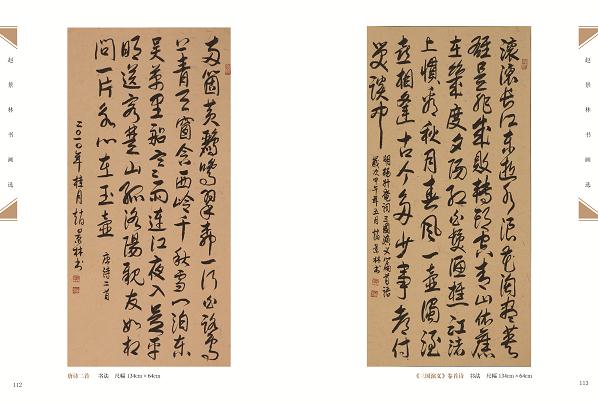 赵景林书画选
两箇黄鹂鸣翠柳一行白鹭
上青天窗含西岭千秋雪门泊东
吴万里船寒雨连江夜入吴平
明送客楚山孤洛阳亲友如相
问一片冰心在玉壶 唐诗二首
二〇一〇年桂月赵景林书
唐诗二首 书法 尺幅 134cm×64cm
112
滚滚长江东逝水浪花淘尽英
雄是非成败转头空青山依旧
在几度夕阳红白发渔樵江渚
上惯看秋月春风一壶浊酒
喜相逢古今多少事都付
笑谈中
明杨升庵词三国演义篇首语
岁次甲午年五月赵景林书
《三国演义》卷首诗 书法 尺幅 134cm×64cm
113
赵景林书画选